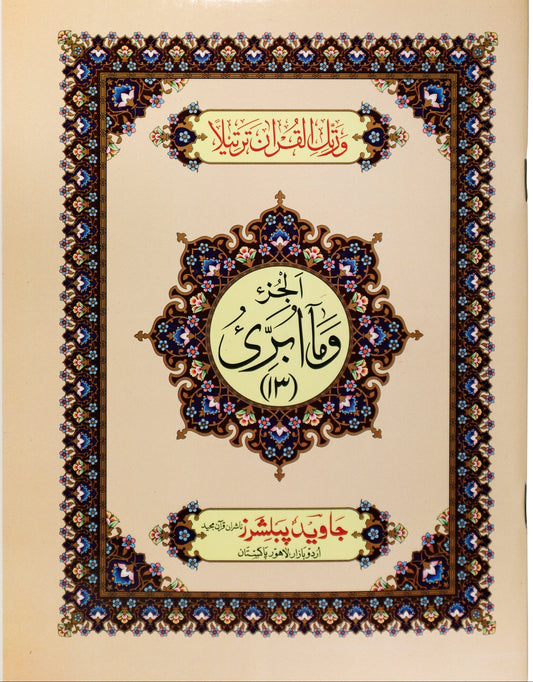 ورتل القرآن ترتیلا
الجزء
وَمَآ اُبَرِّئُ
(۱۳)
جاوید پبلشرز ناشران قرآن مجید
اردو بازار لاہور پاکستان